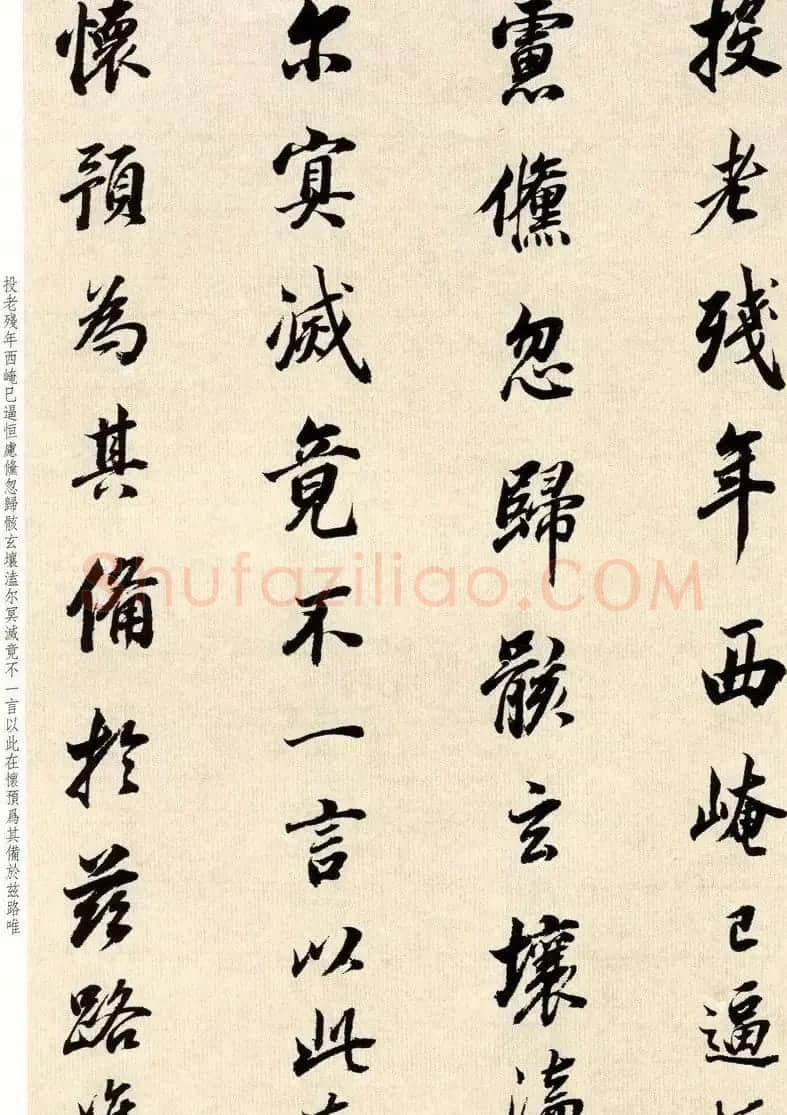 投老殘年西崦已逼恒
慮儵忽歸骸玄壤溘
尔冥滅竟不一言以此在
懷預為其備於兹路唯
投老殘年西崦已逼恒慮儵忽歸骸玄壤溘尔冥滅竟不一言以此在懷預爲其備於兹路唯
Shufaziliao.COM